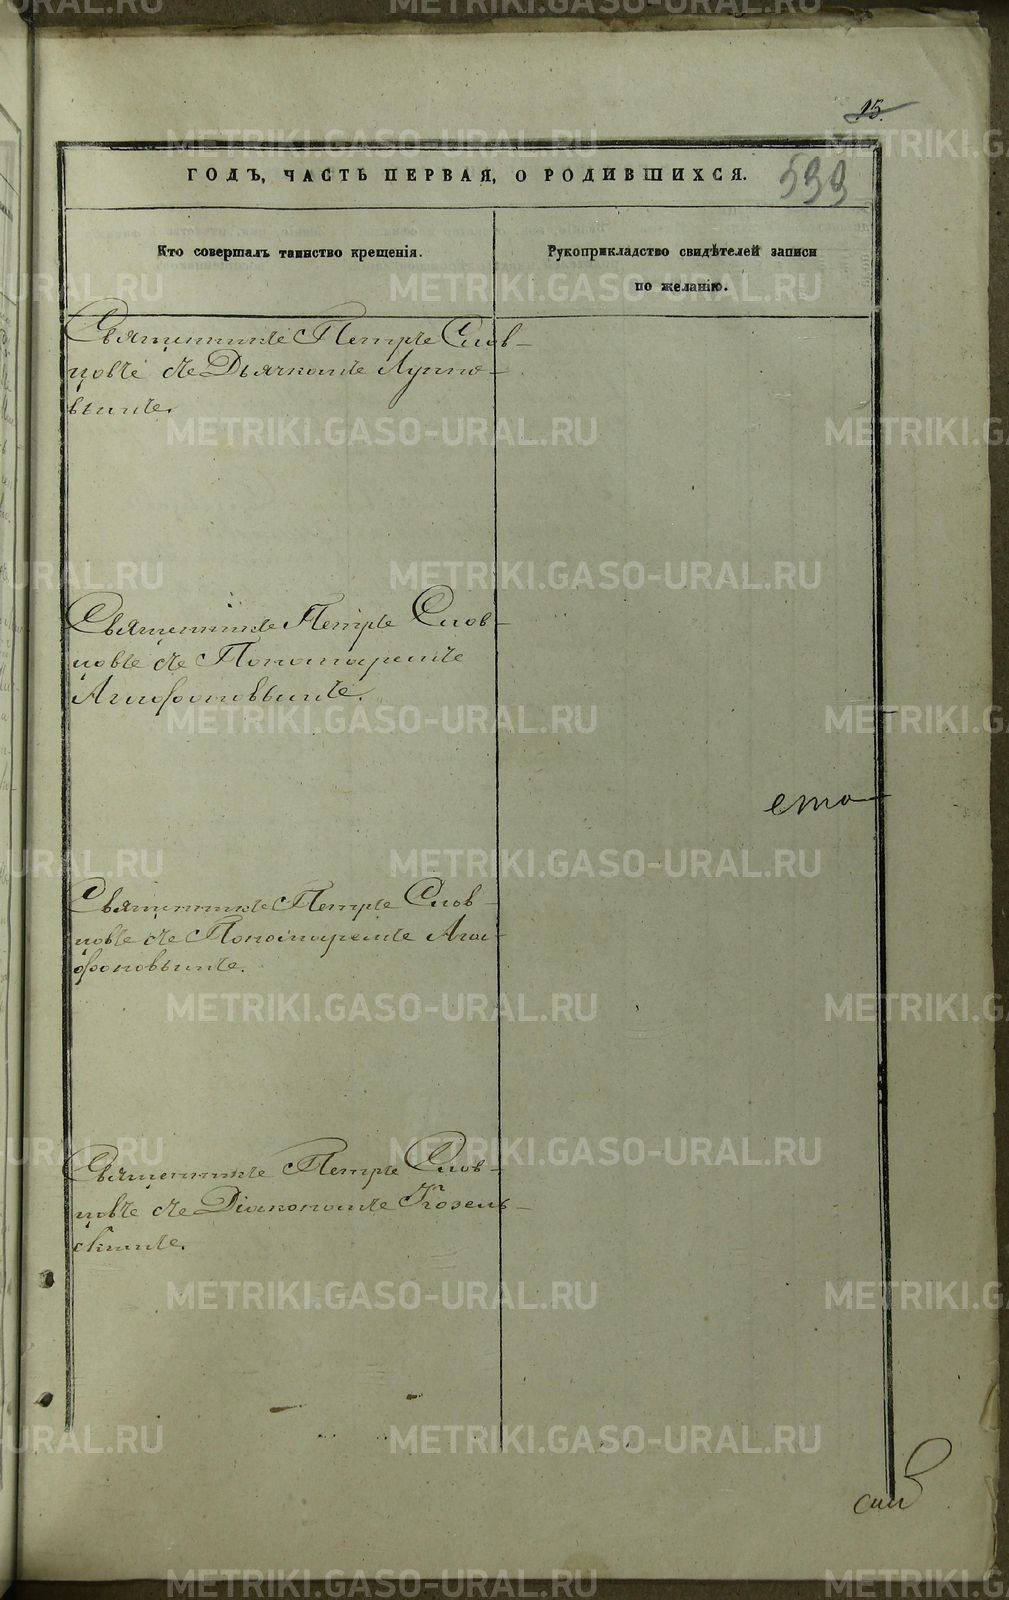 15.
599
ГОДЪ, ЧАСТЬ ПЕРВАЯ, О РОДИВШИХСЯ.
Кто совершалъ таинство крещенія.
Рукоприкладство свидѣтелей записи
по желанію.
Священникъ Петръ Слов-
цовъ съ Дьячкомъ Луппо-
вымъ.
Священникъ Петръ Слов-
цовъ съ Пономаремъ
Агафоновымъ.
ето
Священникъ Петръ Слов-
цовъ съ Пономаремъ Ага-
фоновымъ.
Священникъ Петръ Слов-
цовъ съ Діакономъ Козель-
скимъ.
METRIKI.GASO-URAL.RU